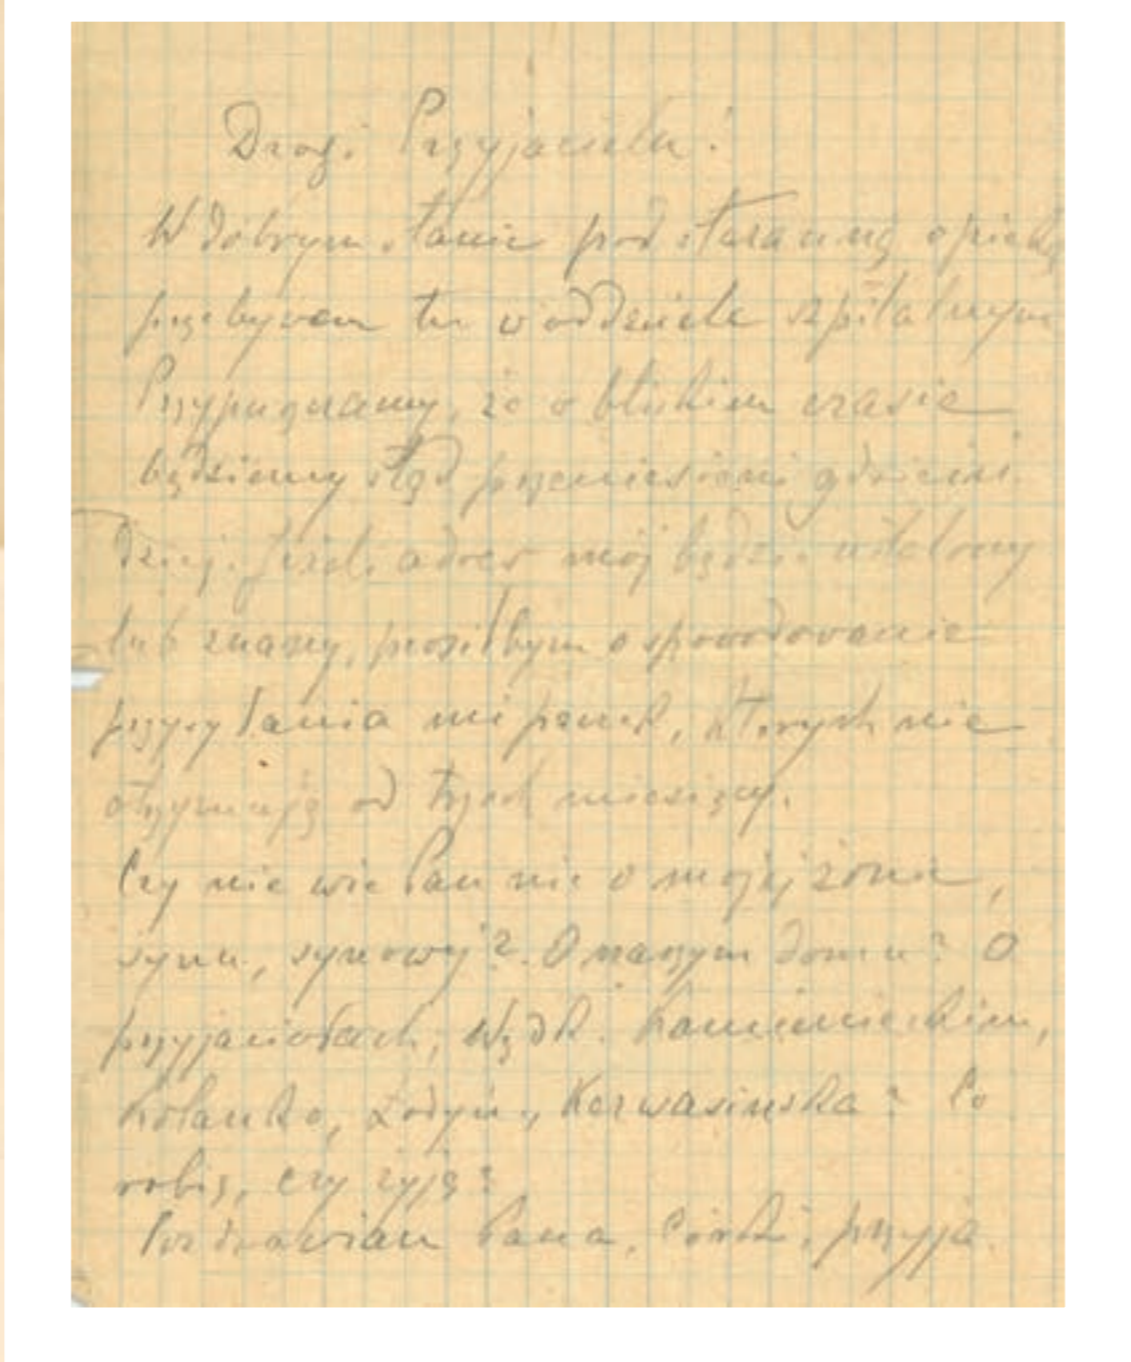 Drogi Przyjacielu!
W dobrym stanie pod staranną opieką
przebywam tu w oddziele szpitalnym
Przypuszczamy, że w bliskim czasie
będziemy stąd przeniesieni gdzieiń
dziej. Jeśli adres mój będzie ustalony
lub znany, prosiłbym o spowodowanie
przysyłania mi paczek, których nie
otrzymuję od trzech miesięcy.
Czy nie wie Pan nic o mojej żonie,
synu, synowej? O naszym domu? O
przyjaciołach, Kamienieckim,
Kolanko, Kerwasińska? Co
robią, czy żyją?
Pozdrawiam Pana, Córki, przyja